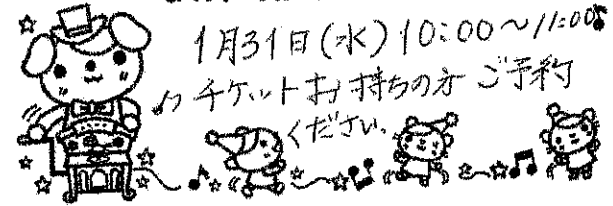 1月31日(水)10:00～11:00
チケットお持ちの方 ご予約
ください。